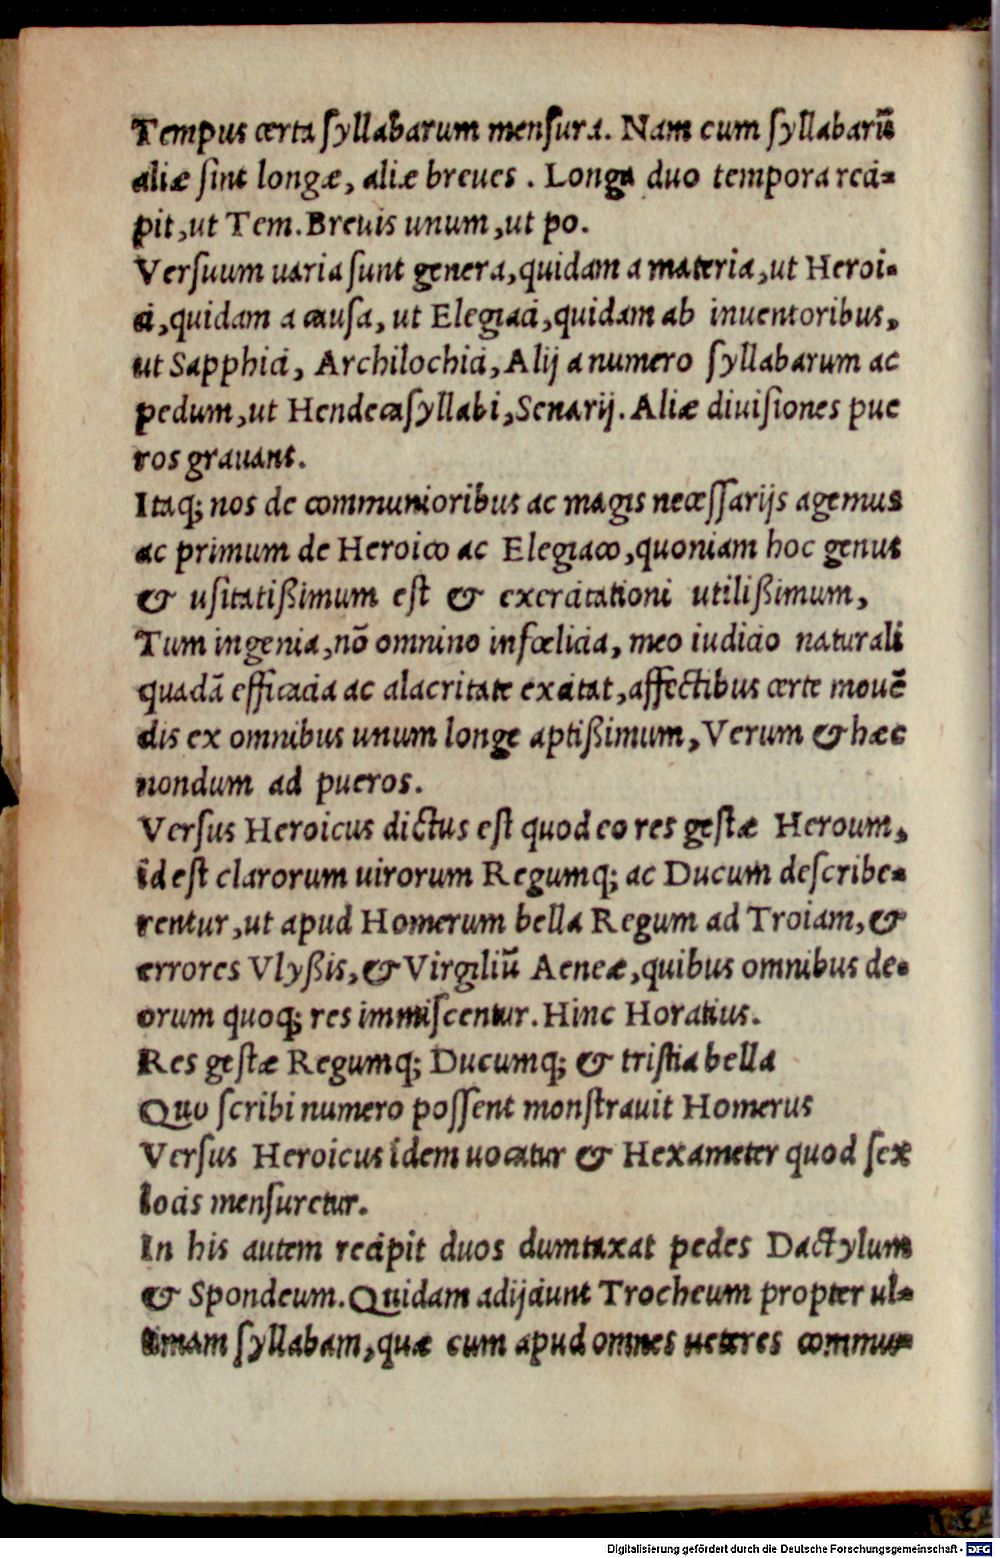 Tempus certa ſyllabarum menſura. Nam cum ſyllabarū
aliæ ſint longæ, aliæ breues . Longa duo tempora reci-
pit,ut Tem.Breuis unum,ut po.
Verſuum uaria ſunt genera,quidam a materia,ut Heroi-
ci,quidam a cauſa, ut Elegiaci,quidam ab inuentoribus,
ut Sapphici, Archilochici, Alij a numero ſyllabarum ac
pedum,ut Hendecaſyllabi,Senarij.Aliæ diuiſiones pue
ros grauant.
Itaq; nos de communioribus ac magis neceſſarijs agemus
ac primum de Heroico ac Elegiaco,quoniam hoc genus
& uſitatißimum eſt & exercitationi utilißimum,
Tum ingenia,nō omnino infœlicia, meo iudicio naturali
quadā efficacia ac alacritate excitat,affectibus certe mouē
dis ex omnibus unum longe aptißimum,Verum & hæc
nondum ad pueros.
Verſus Heroicus dictus eſt quod eo res geſtæ Heroum,
id eſt clarorum uirorum Regumq; ac Ducum deſcribe-
rentur,ut apud Homerum bella Regum ad Troiam,&
errores Vlyßis,& Virgiliū Aeneæ,quibus omnibus de-
orum quoq; res immiſcentur.Hinc Horatius.
Res geſtæ Regumq; Ducumq; & triſtia bella
Quo ſcribi numero poſſent monſtrauit Homerus
Verſus Heroicus idem uocatur & Hexameter quod ſex
locis menſuretur.
In his autem recipit duos dumtaxat pedes Dactylum
& Spondeum.Quidam adijciunt Trocheum propter ul-
timam ſyllabam,quæ cum apud omnes ueteres commu-
Digitalisierung gefördert durch die Deutsche Forschungsgemeinschaft - DFG